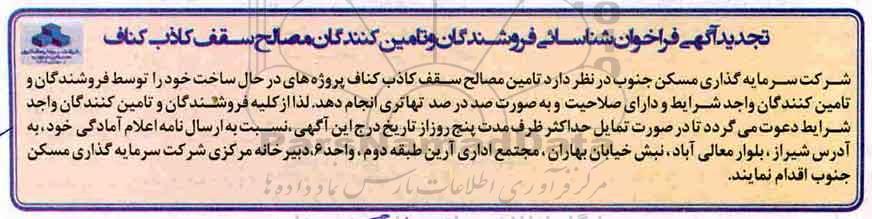 تجدیدآگهی فراخوان شناسائی فروشندگان و تامین کنندگان مصالح سقف کاذب کناف
شرکت سرمایه گذاری مسکن جنوب در نظر دارد تامین مصالح سقف کاذب کناف پروژه های در حال ساخت خود را توسط فروشندگان و
تامین کنندگان واجد شرایط و دارای صلاحیت و به صورت صد در صد تهاتری انجام دهد. لذا از کلیه فروشندگان و تامین کنندگان واجد
شرایط دعوت می گردد تا در صورت تمایل حداکثر ظرف مدت پنج روز از تاریخ درج این آگهی، نسبت به ارسال نامه اعلام آمادگی خود، به
آدرس شیراز، بلوار معالی آباد، نبش خیابان بهاران، مجتمع اداری آرین طبقه دوم، واحد۶، دبیرخانه مرکزی شرکت سرمایه گذاری مسکن
جنوب اقدام نمایند.
مرکز فرآوری اطلاعات پارس نماد داده ها